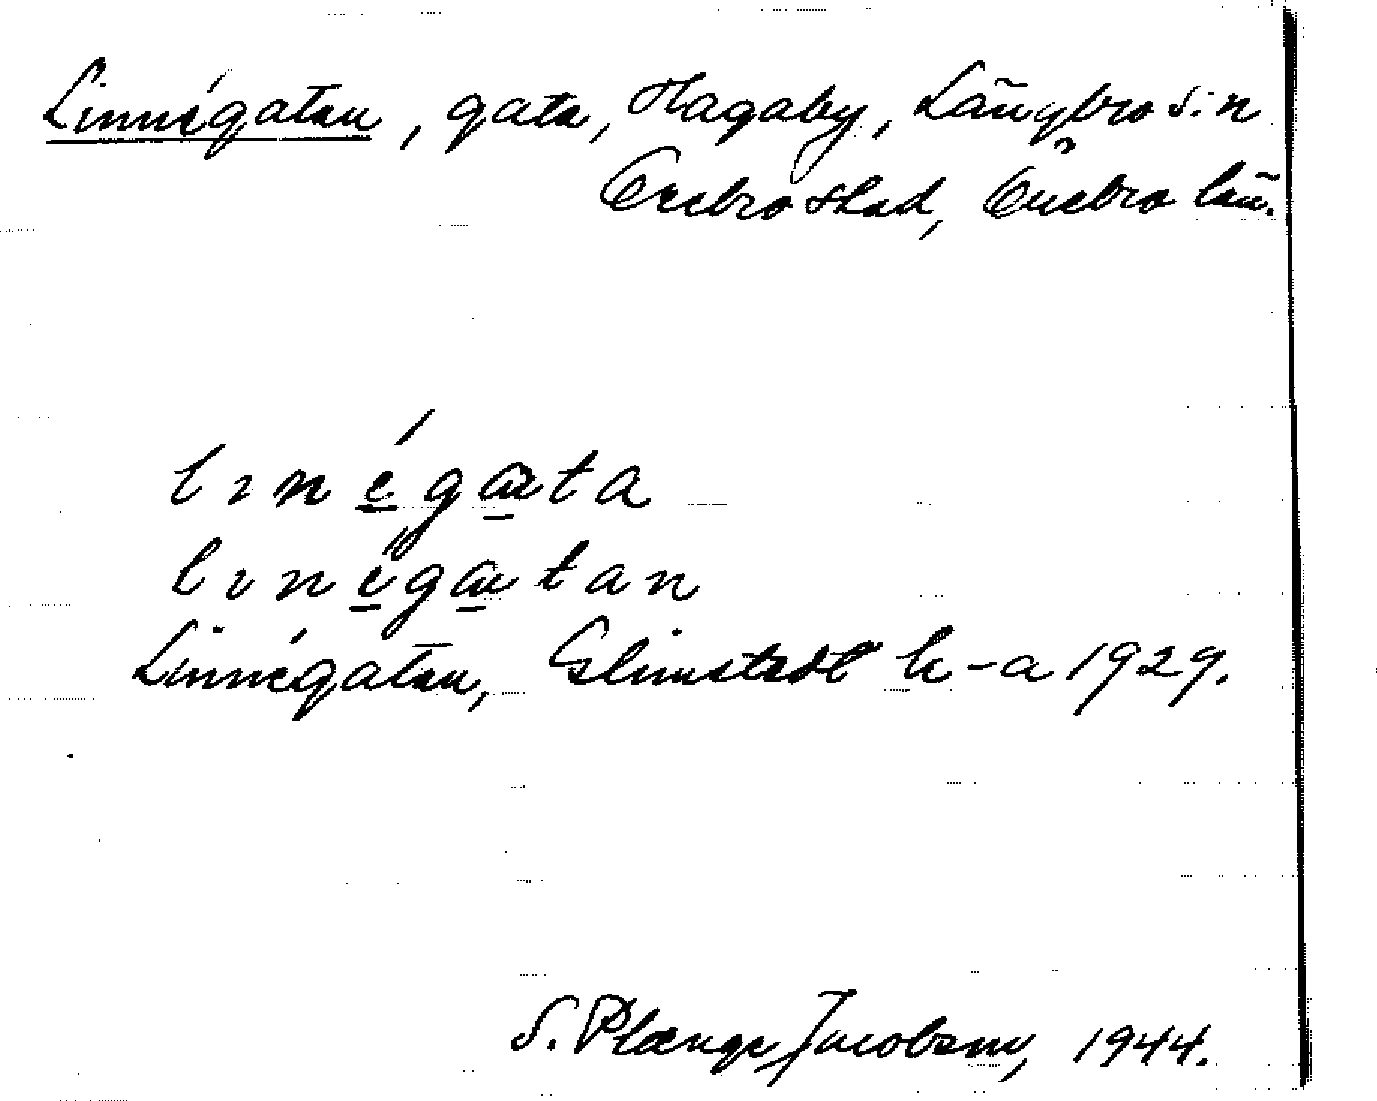 Linnégatan, gata, Hagaby, Längbro s:n
Örebro stad, Örebro län.
lınégata
lınégatan
Linnégatan, Glimstedt k-a 1929.
S. Plænge Jacobson, 1944.